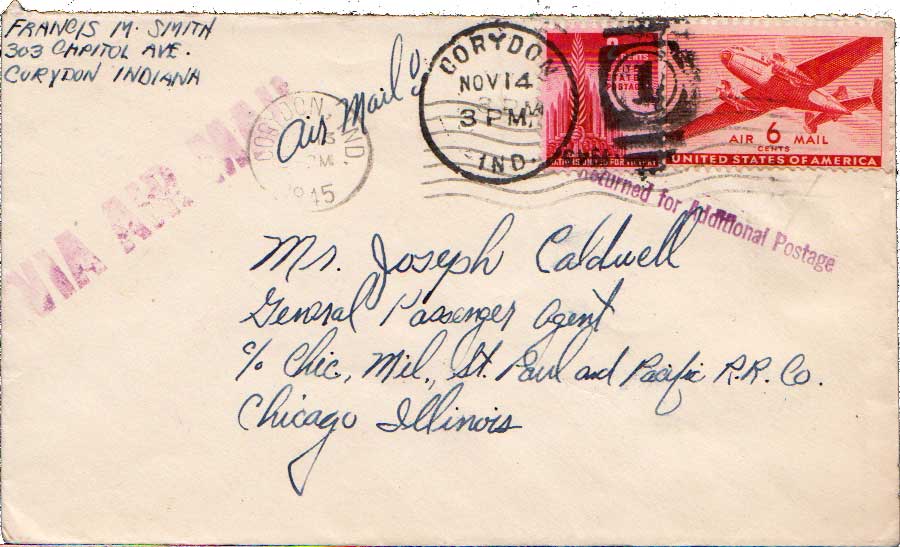 FRANCIS M. SMITH
303 CAPITOL AVE.
CORYDON INDIANA
VIA AIR MAIL
Air Mail
CORYDON IND
PM
1945
CORYDON
NOV 14
3 PM
IND
1
CENTS
POSTAGE
NATIONS UNITED FOR VICTORY
AIR 6 MAIL
CENTS
UNITED STATES OF AMERICA
Returned for Additional Postage
Mr. Joseph Caldwell
General Passenger Agent
c/o Chic, Mil., St. Paul and Pacific R.R. Co.
Chicago Illinois